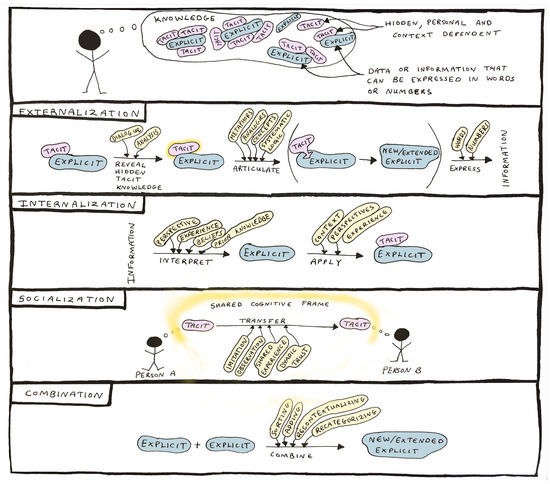 KNOWLEDGE
TACIT
TACIT
TACIT
EXPLICIT
TACIT
TACIT
TACIT
EXPLICIT
TACIT
TACIT
TACIT
EXPLICIT
TACIT
TACIT
EXPLICIT
EXPLICIT
TACIT
TACIT
HIDDEN, PERSONAL AND
CONTEXT DEPENDENT
DATA OR INFORMATION THAT
CAN BE EXPRESSED IN WORDS
OR NUMBERS
EXTERNALIZATION
TACIT
EXPLICIT
DIALOGUE
ANALYSIS
REVEAL
HIDDEN
TACIT
KNOWLEDGE
TACIT
EXPLICIT
METAPHORS
ANALOGIES
CONCEPTS
SYSTEMATIC
LOGIC
ARTICULATE
TACIT
EXPLICIT
NEW/EXTENDED
EXPLICIT
WORDS
NUMBERS
EXPRESS
INFORMATION
INTERNALIZATION
INFORMATION
PERSPECTIVE
EXPERIENCE
BELIEFS
PRIOR KNOWLEDGE
INTERPRET
EXPLICIT
CONTEXT
PERSPECTIVES
EXPERIENCE
APPLY
TACIT
EXPLICIT
SOCIALIZATION
SHARED COGNITIVE FRAME
TACIT
TRANSFER
TACIT
IMITATION
OBSERVATION
SHARED
EXPERIENCE
DYADIC
TRUST
PERSON A
PERSON B
COMBINATION
EXPLICIT + EXPLICIT
SORTING
ADDING
RECONTEXTUALIZING
RECATEGORIZING
COMBINE
NEW/EXTENDED
EXPLICIT